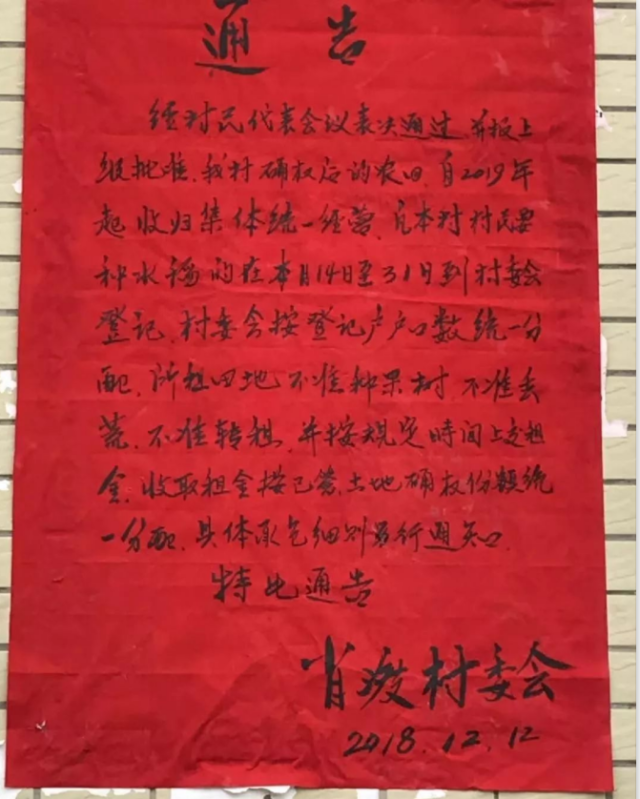 通告
经村民代表会议表决通过并报上
级批准.我村确权后的农田.自2019年
起收归集体统一经营.凡本村村民要
种水稻的在本月14日至31日到村委会
登记.村委会按登记户户口数统一分
配.所租田地不准种果树.不准丢
荒.不准转租.并按规定时间上交租
金.收取租金按已签土地确权份额统
一分配.具体承包细则另行通知.
特此通告
肖疫村委会
2018.12.12